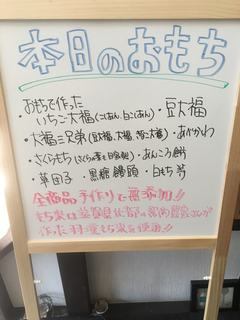 本日のおもち
・おもちで作った
いちご大福(こしあん、白こしあん)・豆大福
・大福三兄弟(豆大福、大福、)・あべかわ
・さくらもち・あんころ餅
・草団子・黒糖饅頭・白もち
全商品手作りで無添加!!
もち米は滋賀県北部の契約農家さんが
作った羽二重もち米を使用!!